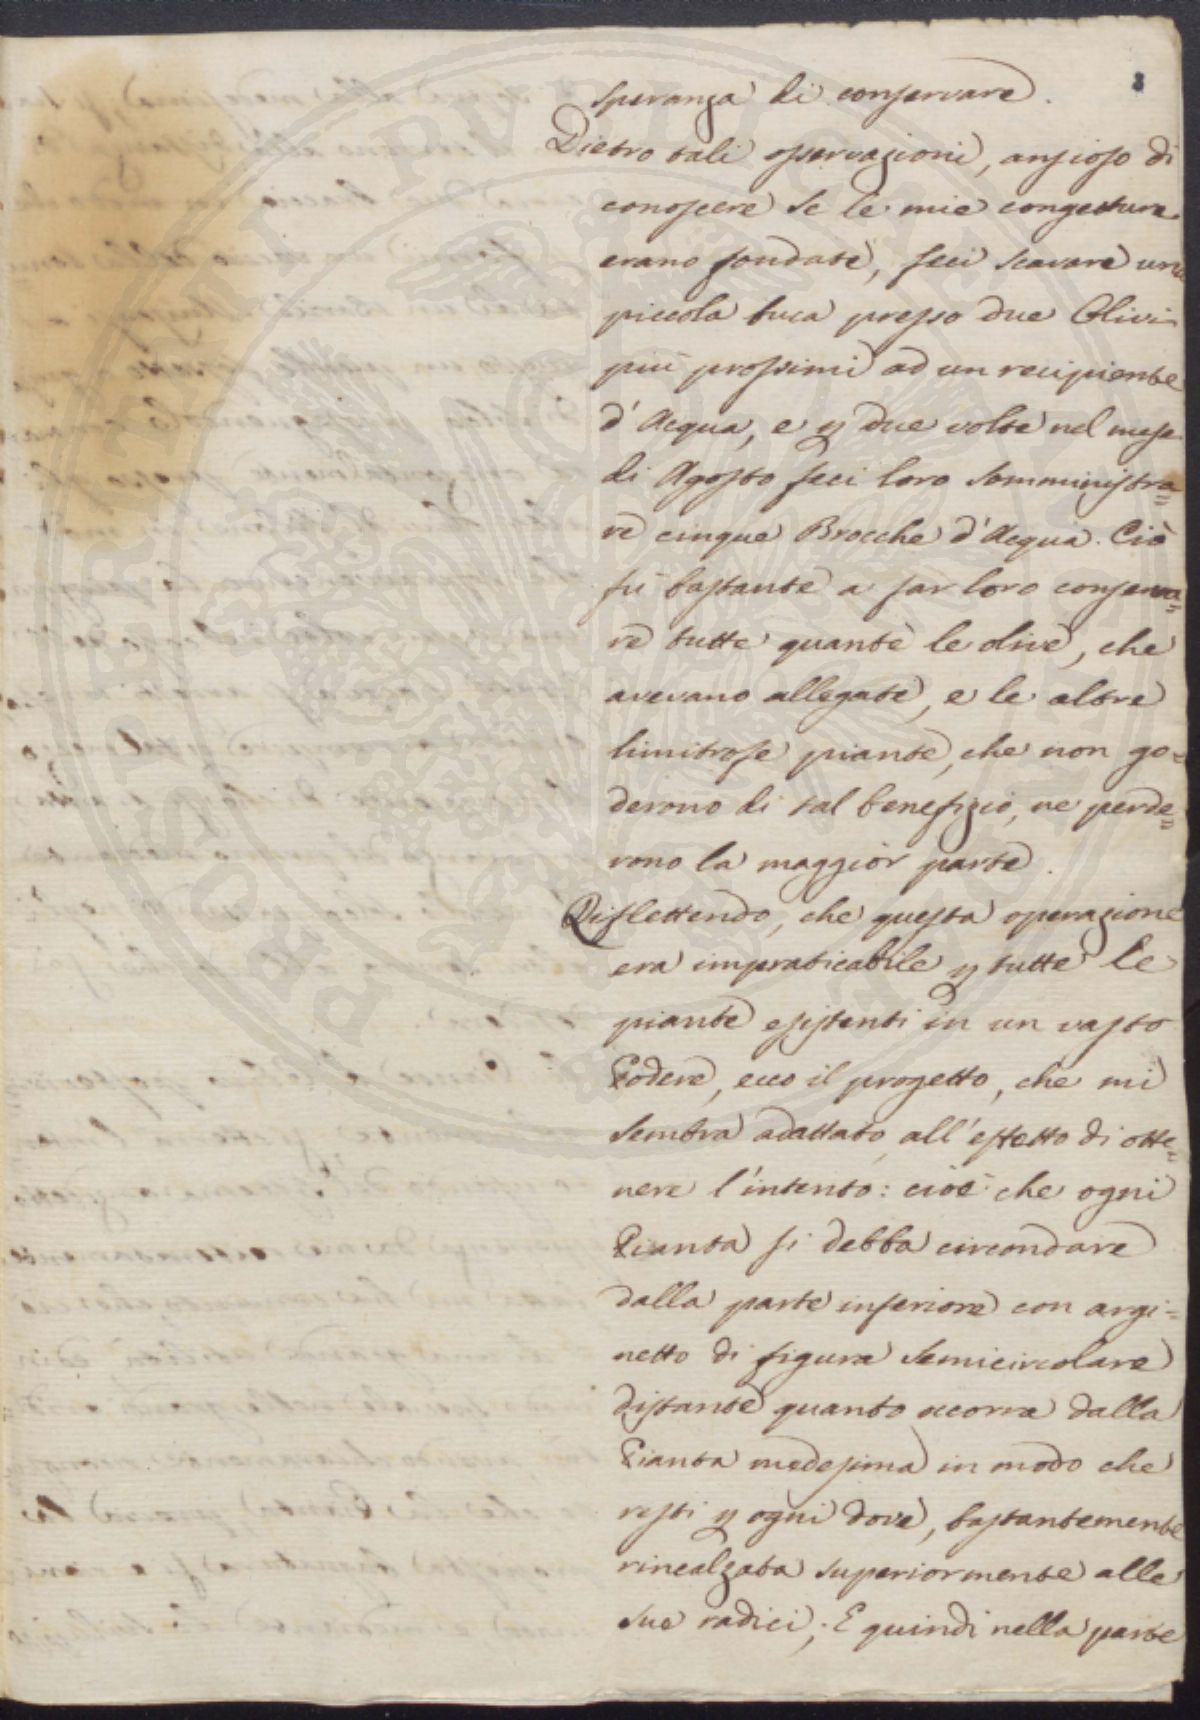 3
speranza di conservare.
Dietro tali osservazioni, ansioso di
conoscere se le mie congetture
erano fondate, feci scavare una
piccola buca presso due Olivi
più prossimi ad un recipiente
d'Acqua, e p due volte nel mese
di Agosto feci loro somministra=
re cinque Brocche d'Acqua. Ciò
fù bastante a far loro conserva=
re tutte quante le olive, che
avevano allegate, e le altre
limitrofe piante, che non go=
derono di tal benefizio, ne perde=
rono la maggior parte.
Riflettendo, che questa operazione
era impraticabile p tutte le
piante esistenti in un vasto
Podere, ecco il progetto, che mi
sembra adattato, all'effetto di otte=
nere l'intento: cioè che ogni
Pianta si debba circondare
dalla parte inferiore con argi=
netto di figura semicircolare
distante quanto occorra dalla
Pianta medesima in modo che
resti p ogni dove, bastantemente
rincalzata superiormente alle
sue radici; E quindi nella parte
PROSPERANTI PVBLICAE